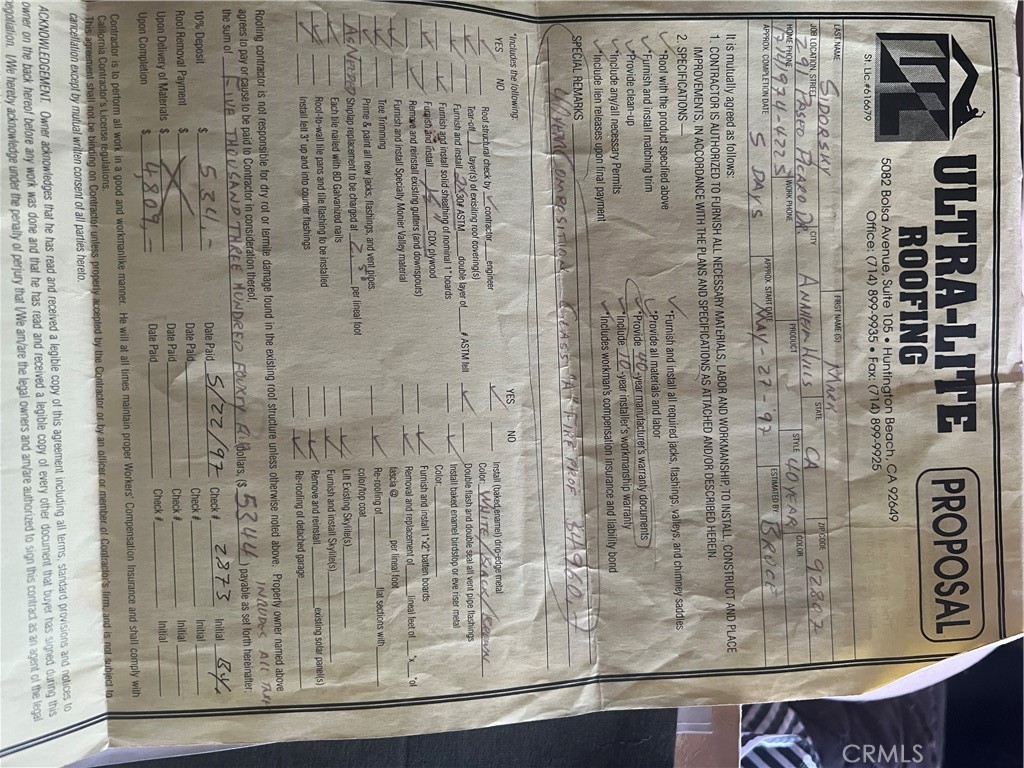 ULTRA-LITE
ROOFING
PROPOSAL
St. Lic.#616679
5082 Bolsa Avenue, Suite 105 • Huntington Beach, CA 92649
Office: (714) 899-9935 • Fax: (714) 899-9925
LAST NAME SIDORSKY FIRST NAME(S) MARK
JOB LOCATION STREET 291 PASEO PICARO DR. CITY ANAHEIM HILLS STATE CA ZIPCODE 92807
HOME PHONE 714/974-4223 WORK PHONE PRODUCT STYLE 40 YEAR COLOR
APPROX. COMPLETION DATE 5 DAYS APPROX. START DATE MAY-27-97 ESTIMATED BY BROCK
It is mutually agreed as follows:
1. CONTRACTOR IS AUTHORIZED TO FURNISH ALL NECESSARY MATERIALS, LABOR AND WORKMANSHIP, TO INSTALL, CONSTRUCT AND PLACE
IMPROVEMENTS, IN ACCORDANCE WITH THE PLANS AND SPECIFICATIONS AS ATTACHED AND/OR DESCRIBED HEREIN.
2. SPECIFICATIONS—
*Roof with the product specified above
*Furnish and install matching trim
*Provide clean-up
*Include any/all necessary Permits
*Include lien releases upon final payment
*Furnish and install all required jacks, flashings, valleys, and chimney saddles
*Provide all materials and labor
*Provide 40-year manufacturer's warranty documents
*Include 10-year installer's workmanship warranty
*Includes workman's compensation insurance and liability bond
SPECIAL REMARKS
COMPOSITION CLASS "A" FIRE PROOF
*Includes the following:
YES NO
Roof structural check by contractor engineer
Tear-off 1 layer(s) of existing roof covering(s)
Furnish and install 30# ASTM double layer of # ASTM felt
Furnish and install solid sheathing of nominal 1" boards
Furnish and install CDX plywood
Remove and reinstall existing gutters (and downspouts)
Furnish and install Specialty Monier Valley material
Tree Trimming
Prime & paint all new jacks, flashings, and vent pipes
AS NEEDED Shiplap replacement to be charged at 2.50 per lineal foot
Each tile nailed with 8D Galvanized nails
Roof-to-wall tile pans and tile flashing to be installed
Install felt 3" up and into counter flashings
YES NO
Install (baked enamel) drip-edge metal
Color: WHITE/BLACK/BROWN
Double flash and double seal all vent pipe flashings
Install baked enamel birdstop or eve riser metal
Color
Furnish and install 1"x2" batten boards
Removal and replacement of lineal feet of "x "of
fascia @ per lineal foot
Re-roofing of flat sections with
color/top coat
Lift Existing Skylite(s)
Furnish and install Skylite(s)
Remove and reinstall existing solar panel(s)
Re-roofing of detached garage
Roofing contractor is not responsible for dry rot or termite damage found in the existing roof structure unless otherwise noted above. Property owner named above
agrees to pay or cause to be paid to Contractor in consideration thereof, INCLUDES ALL TAX
the sum of FIVE THOUSAND THREE HUNDRED FOURTY dollars, ($ 5344 ) payable as set forth hereinafter:
10% Deposit $ 534,- Date Paid 5/22/97 Check # 2873 Initial
Roof Removal Payment $ Date Paid Check # Initial
Upon Delivery of Materials $ Date Paid Check # Initial
Upon Completion $ 4,809,- Date Paid Check # Initial
Contractor is to perform all work in a good and workmanlike manner. He will at all times maintain proper Workers' Compensation Insurance and shall comply with
California Contractor's License regulations.
This agreement shall not be binding on Contractor unless properly accepted by the Contractor or by an officer or member of Contractor's firm, and is not subject to
cancellation except by mutual written consent of all parties hereto.
ACKNOWLEDGEMENT. Owner acknowledges that he has read and received a legible copy of this agreement including all terms, standard provisions and notices to
owner on the back hereof before any work was done and that he has read and received a legible copy of every other document that buyer has signed during this
negotiation. I/We hereby acknowledge under the penalty of perjury that I/We am/are the legal owners and am/are authorized to sign this contract as an agent of the legal
CRMLS